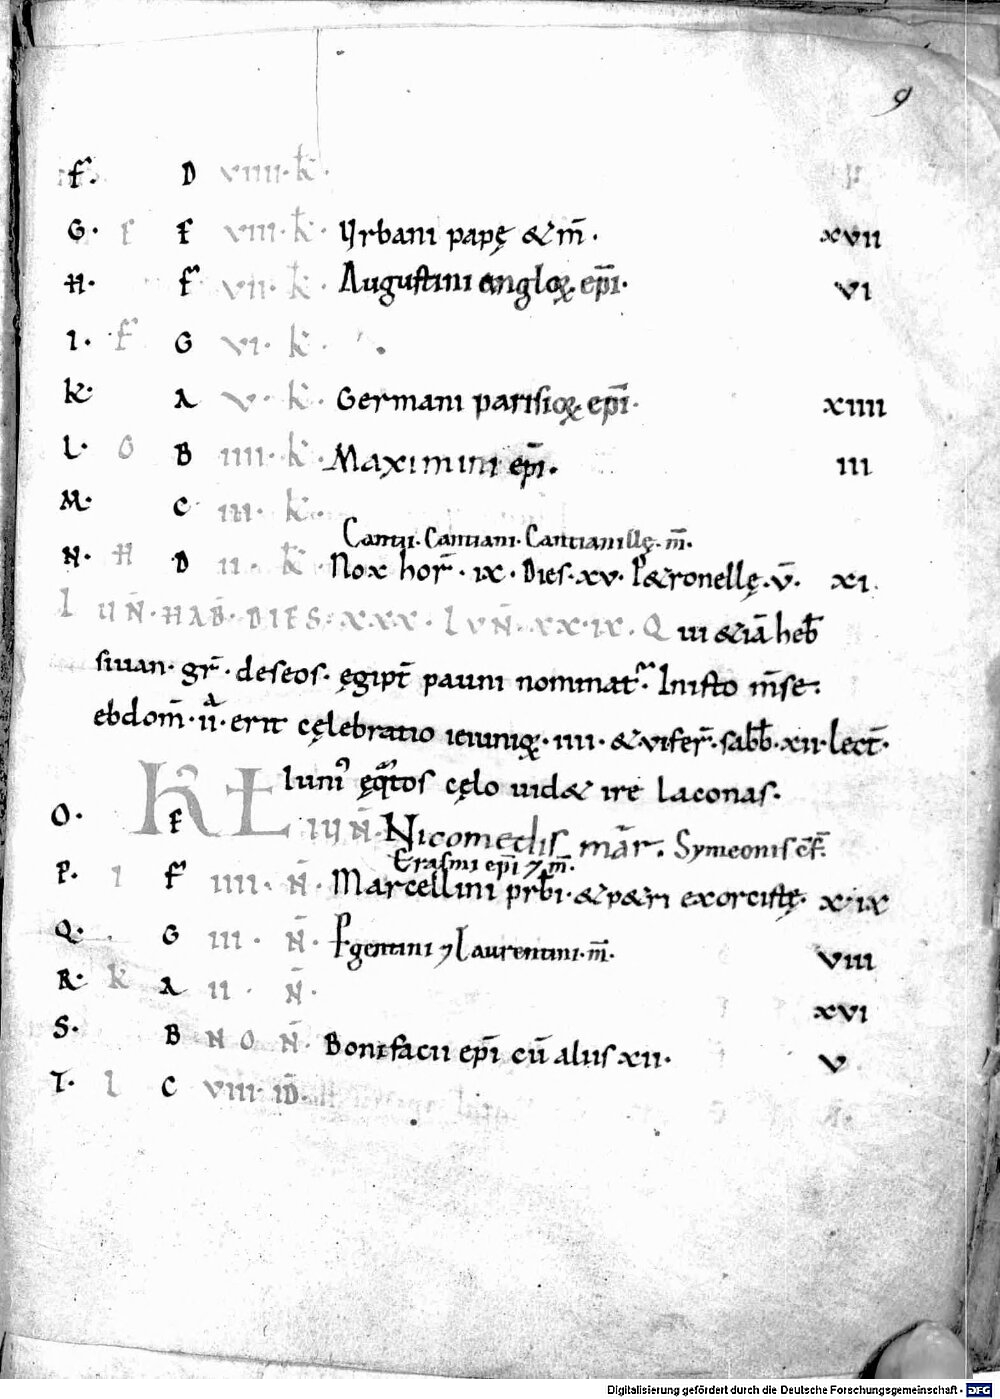 9
F. D VIIII. K. II
G. E E VIII. K. Vrbani papę & m̄. XVII
H. F VII. K. Augustini angloꝝ ep̄i. VI
I. F G VI. K.
K. A V. K. Germani parisioꝝ ep̄i. XIIII
L. G B IIII. K. Maximini ep̄i. III
M. C III. K.
Cantii. Cantiani. Cantianillę. m̄.
N. H D II. K. Nox hor̄. ix. Dies. xv. P&ronellę. v̄. XI.
IUN̄. HAB̄. DIES. XXX. LVN̄. XXIX. Q ui & iā heb̄
siuan. gr̄. deseos. ęgipt̄ pauni nominat᷑. In isto m̄se.
ebdom̄. II.a erit cęlebratio ieiunioꝝ. IIII. & VI fer̄. sabb̄. XII. lect̄.
Iuni᷒ ęq̇tos cęlo uid& ire laconas.
O. E KL IUN̄. Nicomedis mār. Symeonis c̄f.
Erasmi ep̄i ⁊ m̄.
P. I F IIII. N̄. Marcellini prb̄i. & p&ri exorcistę. XIX
Q. G III. N̄. Pgentini ⁊ Laurentini. m̄. VIII
R. K A II. N̄. XVI
S. B NON̄. Bonifacii ep̄i cū aliis XII. V
T. L C VIII. ID̄.
Digitalisierung gefördert durch die Deutsche Forschungsgemeinschaft - DFG